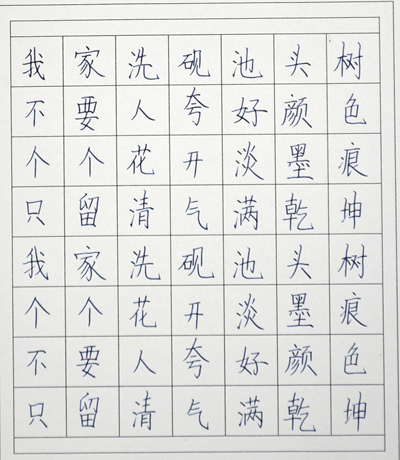 我家洗砚池头树
不要人夸好颜色
个个花开淡墨痕
只留清气满乾坤
我家洗砚池头树
个个花开淡墨痕
不要人夸好颜色
只留清气满乾坤